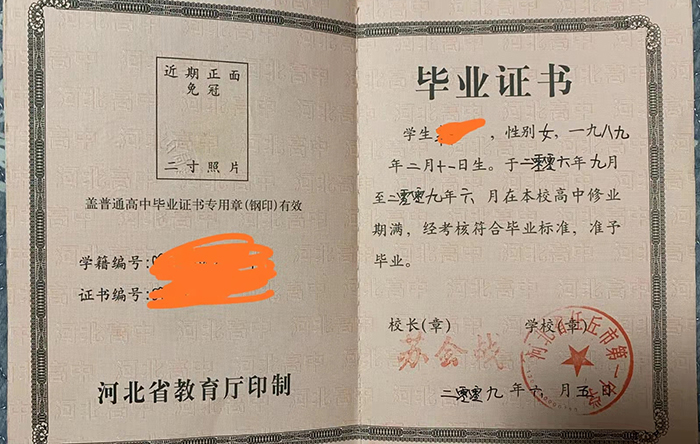 近期正面
免冠
二寸照片
盖普通高中毕业证书专用章(钢印)有效
学籍编号:
证书编号:
河北省教育厅印制
毕业证书
学生 ,性别女,一九八九
年二月十一日生。于二零零六年九月
至二零零九年六月在本校高中修业
期满,经考核符合毕业标准,准予
毕业。
校长(章) 学校(章)
苏会战
河北省任丘市第一
二零零九年六月五日